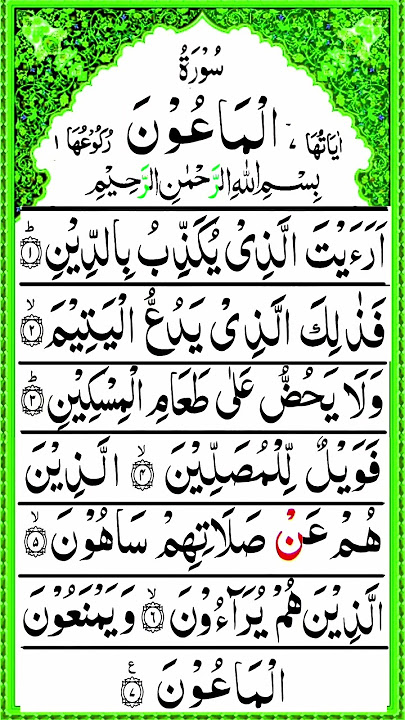 سُوْرَةُ
اٰيَاتُهَا ٧ الْمَاعُوْنَ رُكُوْعُهَا ١
بِسْمِ اللّٰهِ الرَّحْمٰنِ الرَّحِيْمِ
اَرَءَيْتَ الَّذِىْ يُكَذِّبُ بِالدِّيْنِ ؕ‏ ﴿۱﴾
فَذٰلِكَ الَّذِىْ يَدُعُّ الْيَتِيْمَ ۙ‏ ﴿۲﴾
وَلَا يَحُضُّ عَلٰى طَعَامِ الْمِسْكِيْنِ ؕ‏ ﴿۳﴾
فَوَيْلٌ لِّلْمُصَلِّيْنَ ۙ‏ ﴿۴﴾ الَّذِيْنَ
هُمْ عَنْ صَلَاتِهِمْ سَاهُوْنَ ۙ‏ ﴿۵﴾
الَّذِيْنَ هُمْ يُرَآءُوْنَ ۙ‏ ﴿۶﴾ وَيَمْنَعُوْنَ
الْمَاعُوْنَ ‏ ﴿۷﴾ ع